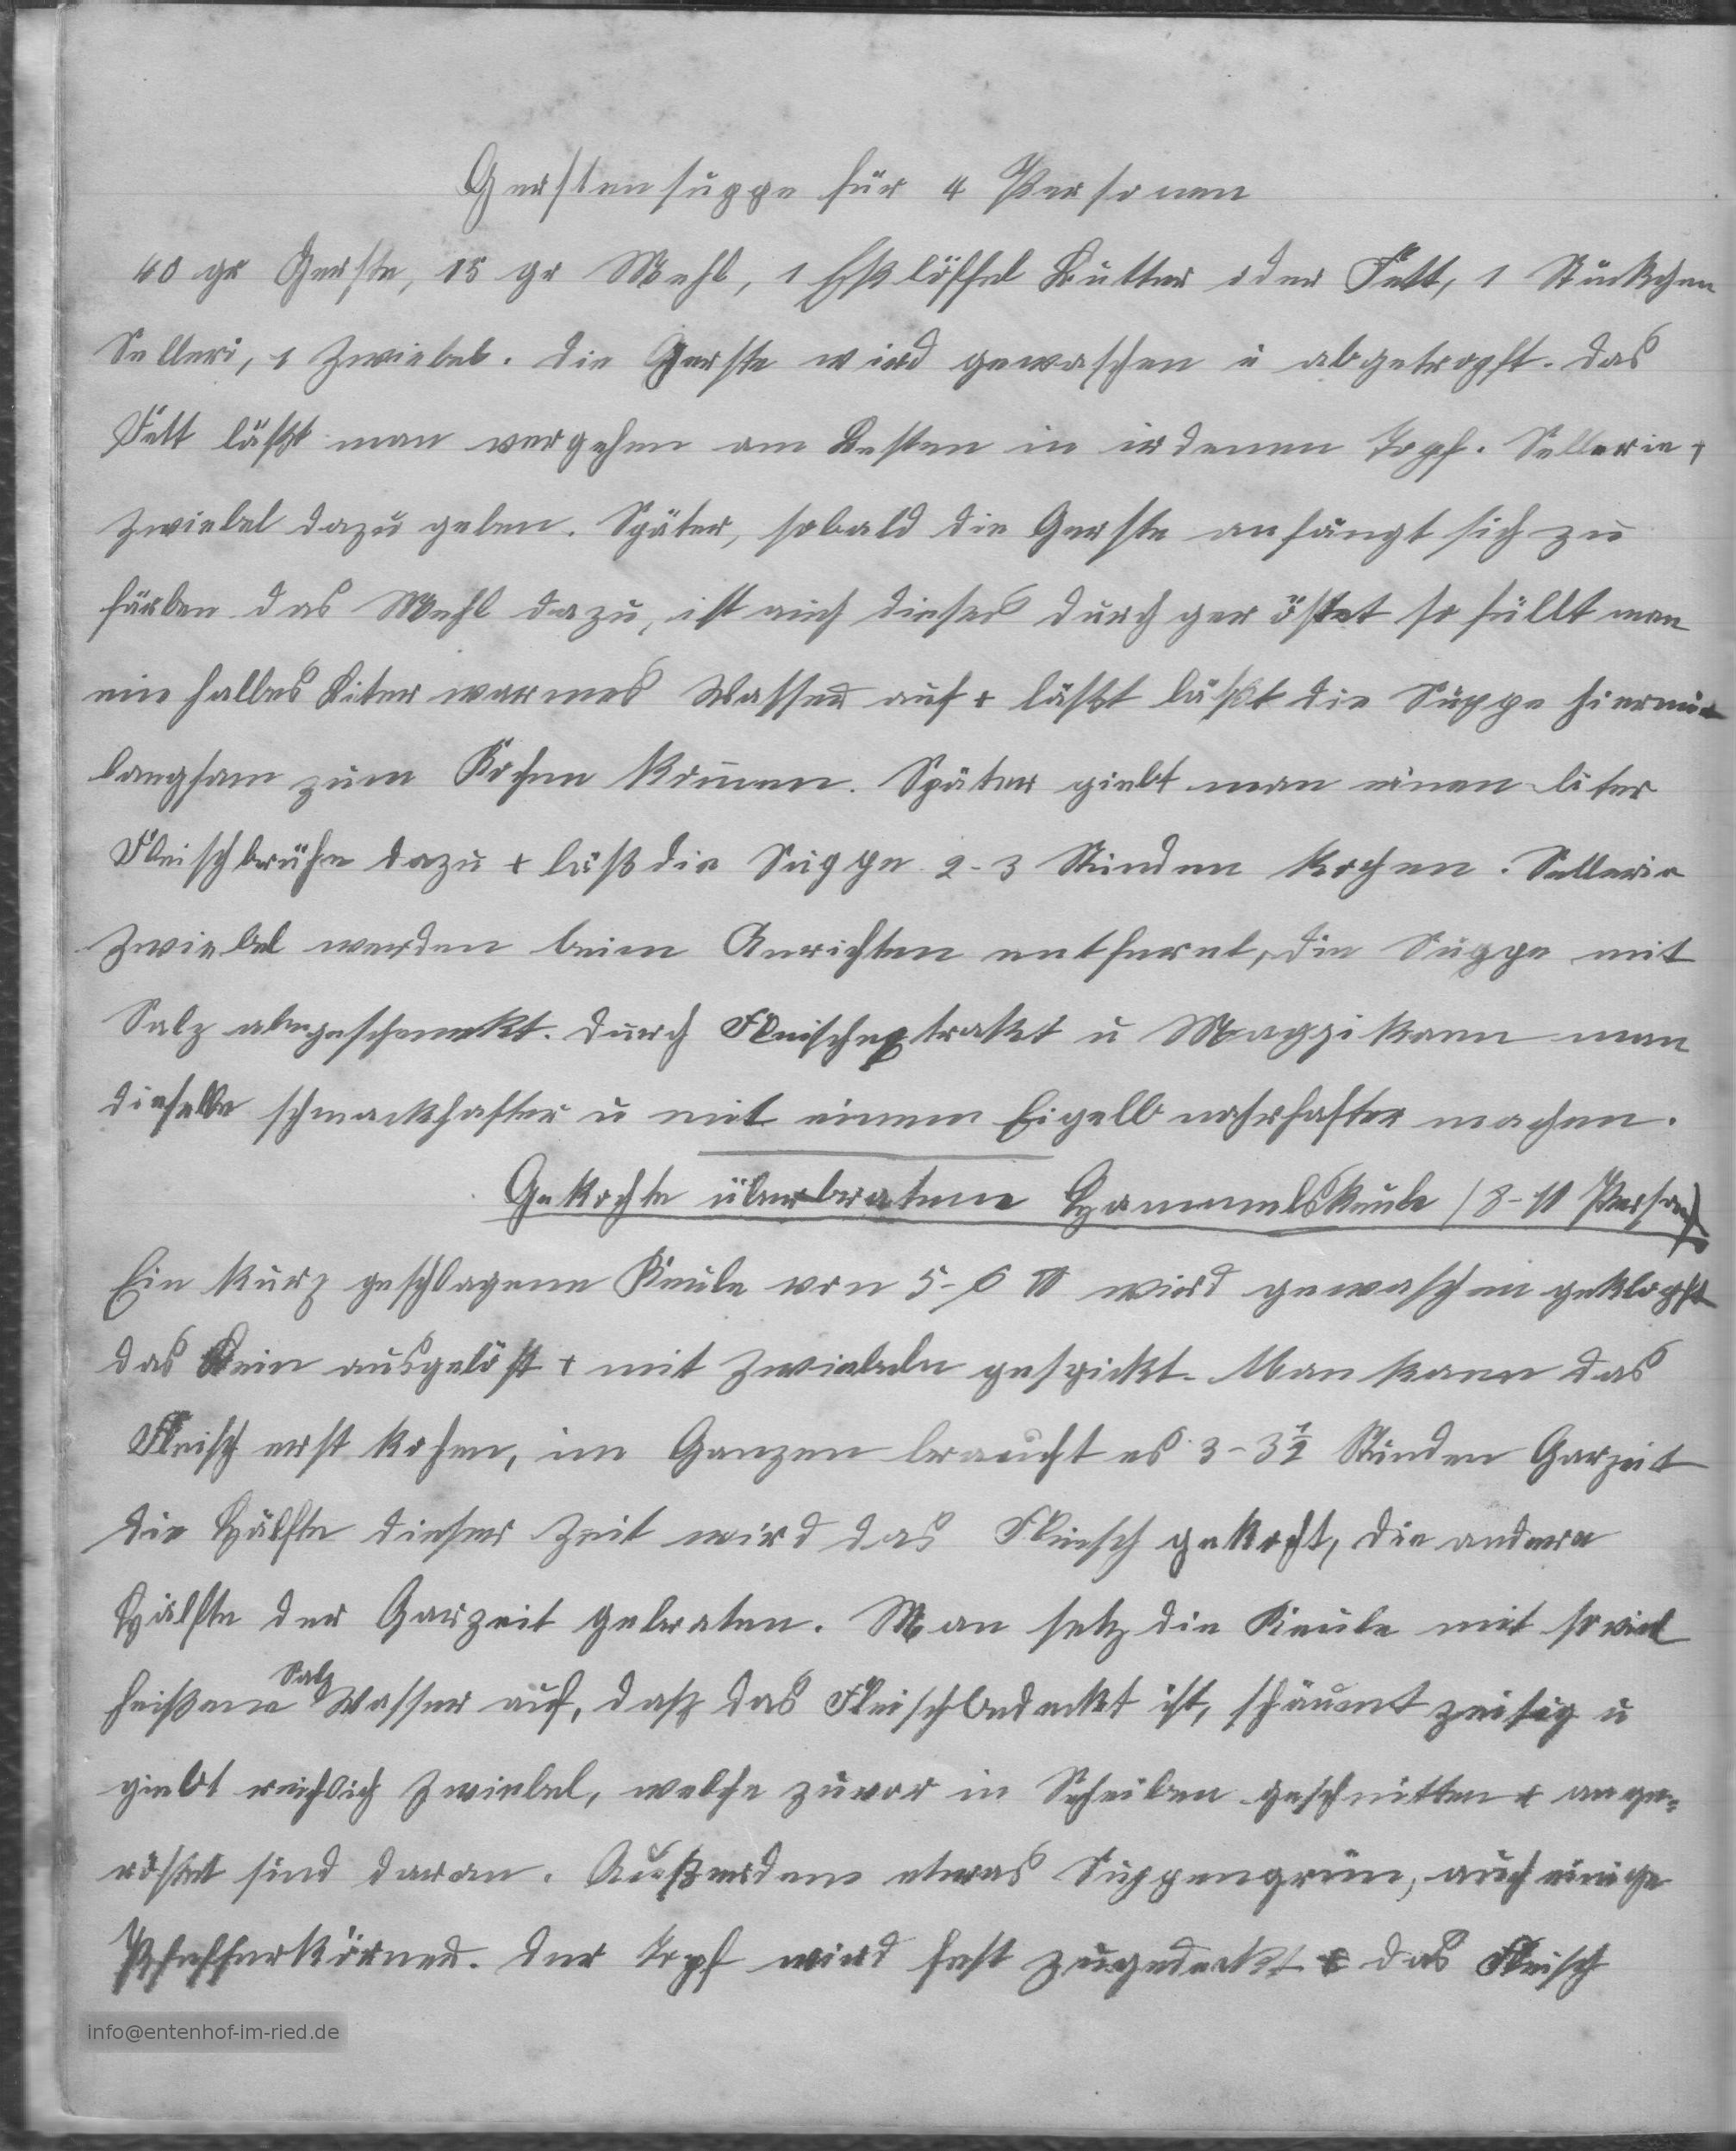 Gerstensuppe für 4 Personen
40 gr Gerste, 15 gr Mehl, 1 Eßlöffel Butter oder Fett, 1 Stückchen
Selleri, 1 Zwiebel. Die Gerste wird gewaschen u abgetropft. Das
Fett läßt man vergehen am Besten in irdenen Topf. Sellerie +
Zwiebel dazu geben. Später, sobald die Gerste anfängt sich zu
färben das Mehl dazu, ist auch dieses durch geröstet so füllt man
ein halbes Liter warmes Wasser auf + läßt läßt die Suppe hiermit
langsam zum Kochen kommen. Später giebt man einen liter
Fleischbrühe dazu + läß die Suppe 2-3 Stunden kochen. Sellerie
Zwiebel werden beim Anrichten entfernt, die Suppe mit
Salz abgeschmekt. Durch Fleischextrakt u Maggi kann man
dieselbe schmackhafter u mit einem Eigelb nahrhafter machen.
Gekochte überbratene Hammelskeule (8-10 Person)
Ein kurz geschlagene Keule von 5-6 ℔ wird gewaschen geklopft
das Bein ausgelöst + mit Zwiebeln gespickt. Man kann das
Fleisch erst kohen, im Ganzen braucht es 3-3½ Stunden Garzeit
die Hälfte dieser Zeit wird das Fleisch gekocht, die andere
Hälfte der Garzeit gebraten. Man setz die Keule mit so viel
heißem Salz Wasser auf, daß das Fleisch bedeckt ist, schäumt zeitig u
giebt reichlich Zwiebel, welche zuvor in Scheiben geschnitten + ange=
röstet sind daran. Außerdem etwas Suppengrün, auch einige
Pfefferkörner. Der Topf wird fest zugedeckt + das Fleisch
info@entenhof-im-ried.de